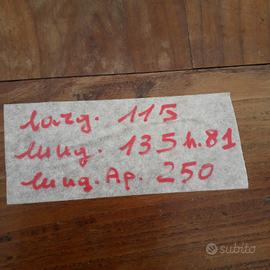 larg. 115
lung. 135 h. 81
lung. Ap. 250
subito